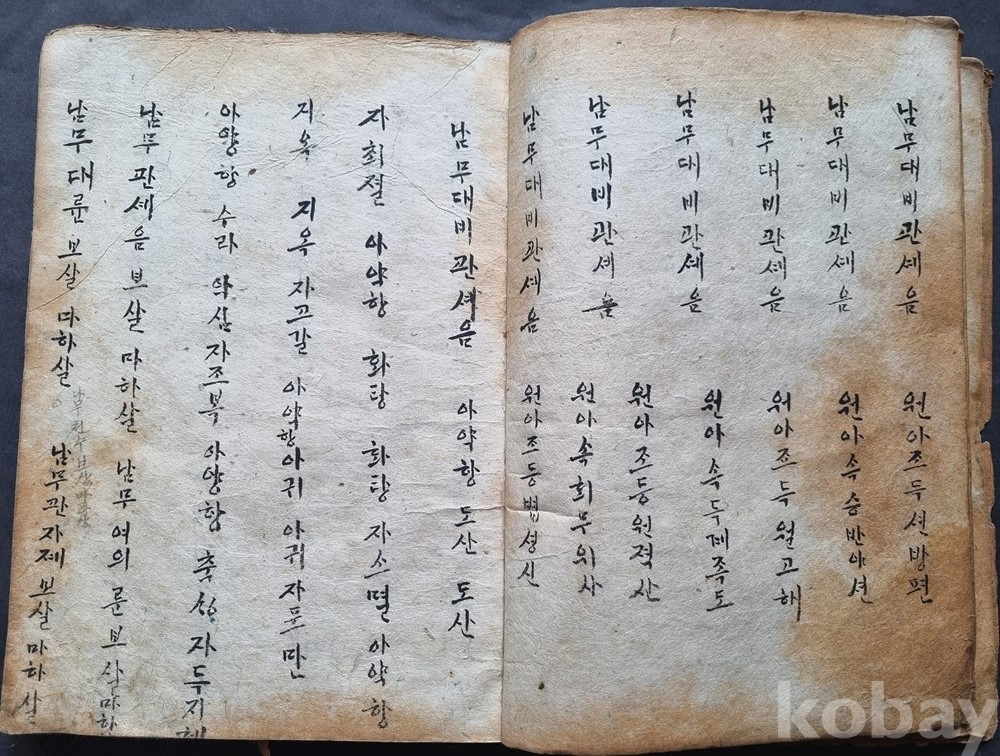 남무대비관셰음 원아조득션방편
남무대비관셰음 원아속승반야션
남무대비관셰음 원아조득월고해
남무대비관셰음 원아속득계족도
남무대비관셰음 원아조등원젹산
남무대비관셰음 원아속회무위사
남무대비관셰음 원아조동법셩신
남무대비관셰음 아약향도산 도산
자최졀 아약향 화탕 화탕 자소멸 아약향
지옥 지옥 자고갈 아약향아귀 아귀자포만
아양향 수라 악심자조복 아양향 축싱 자득지혜
남무관셰음보살 마하살 남무 여의륜보살마하
남무대륜보살 마하살 남무관자재보살마하살
kobay